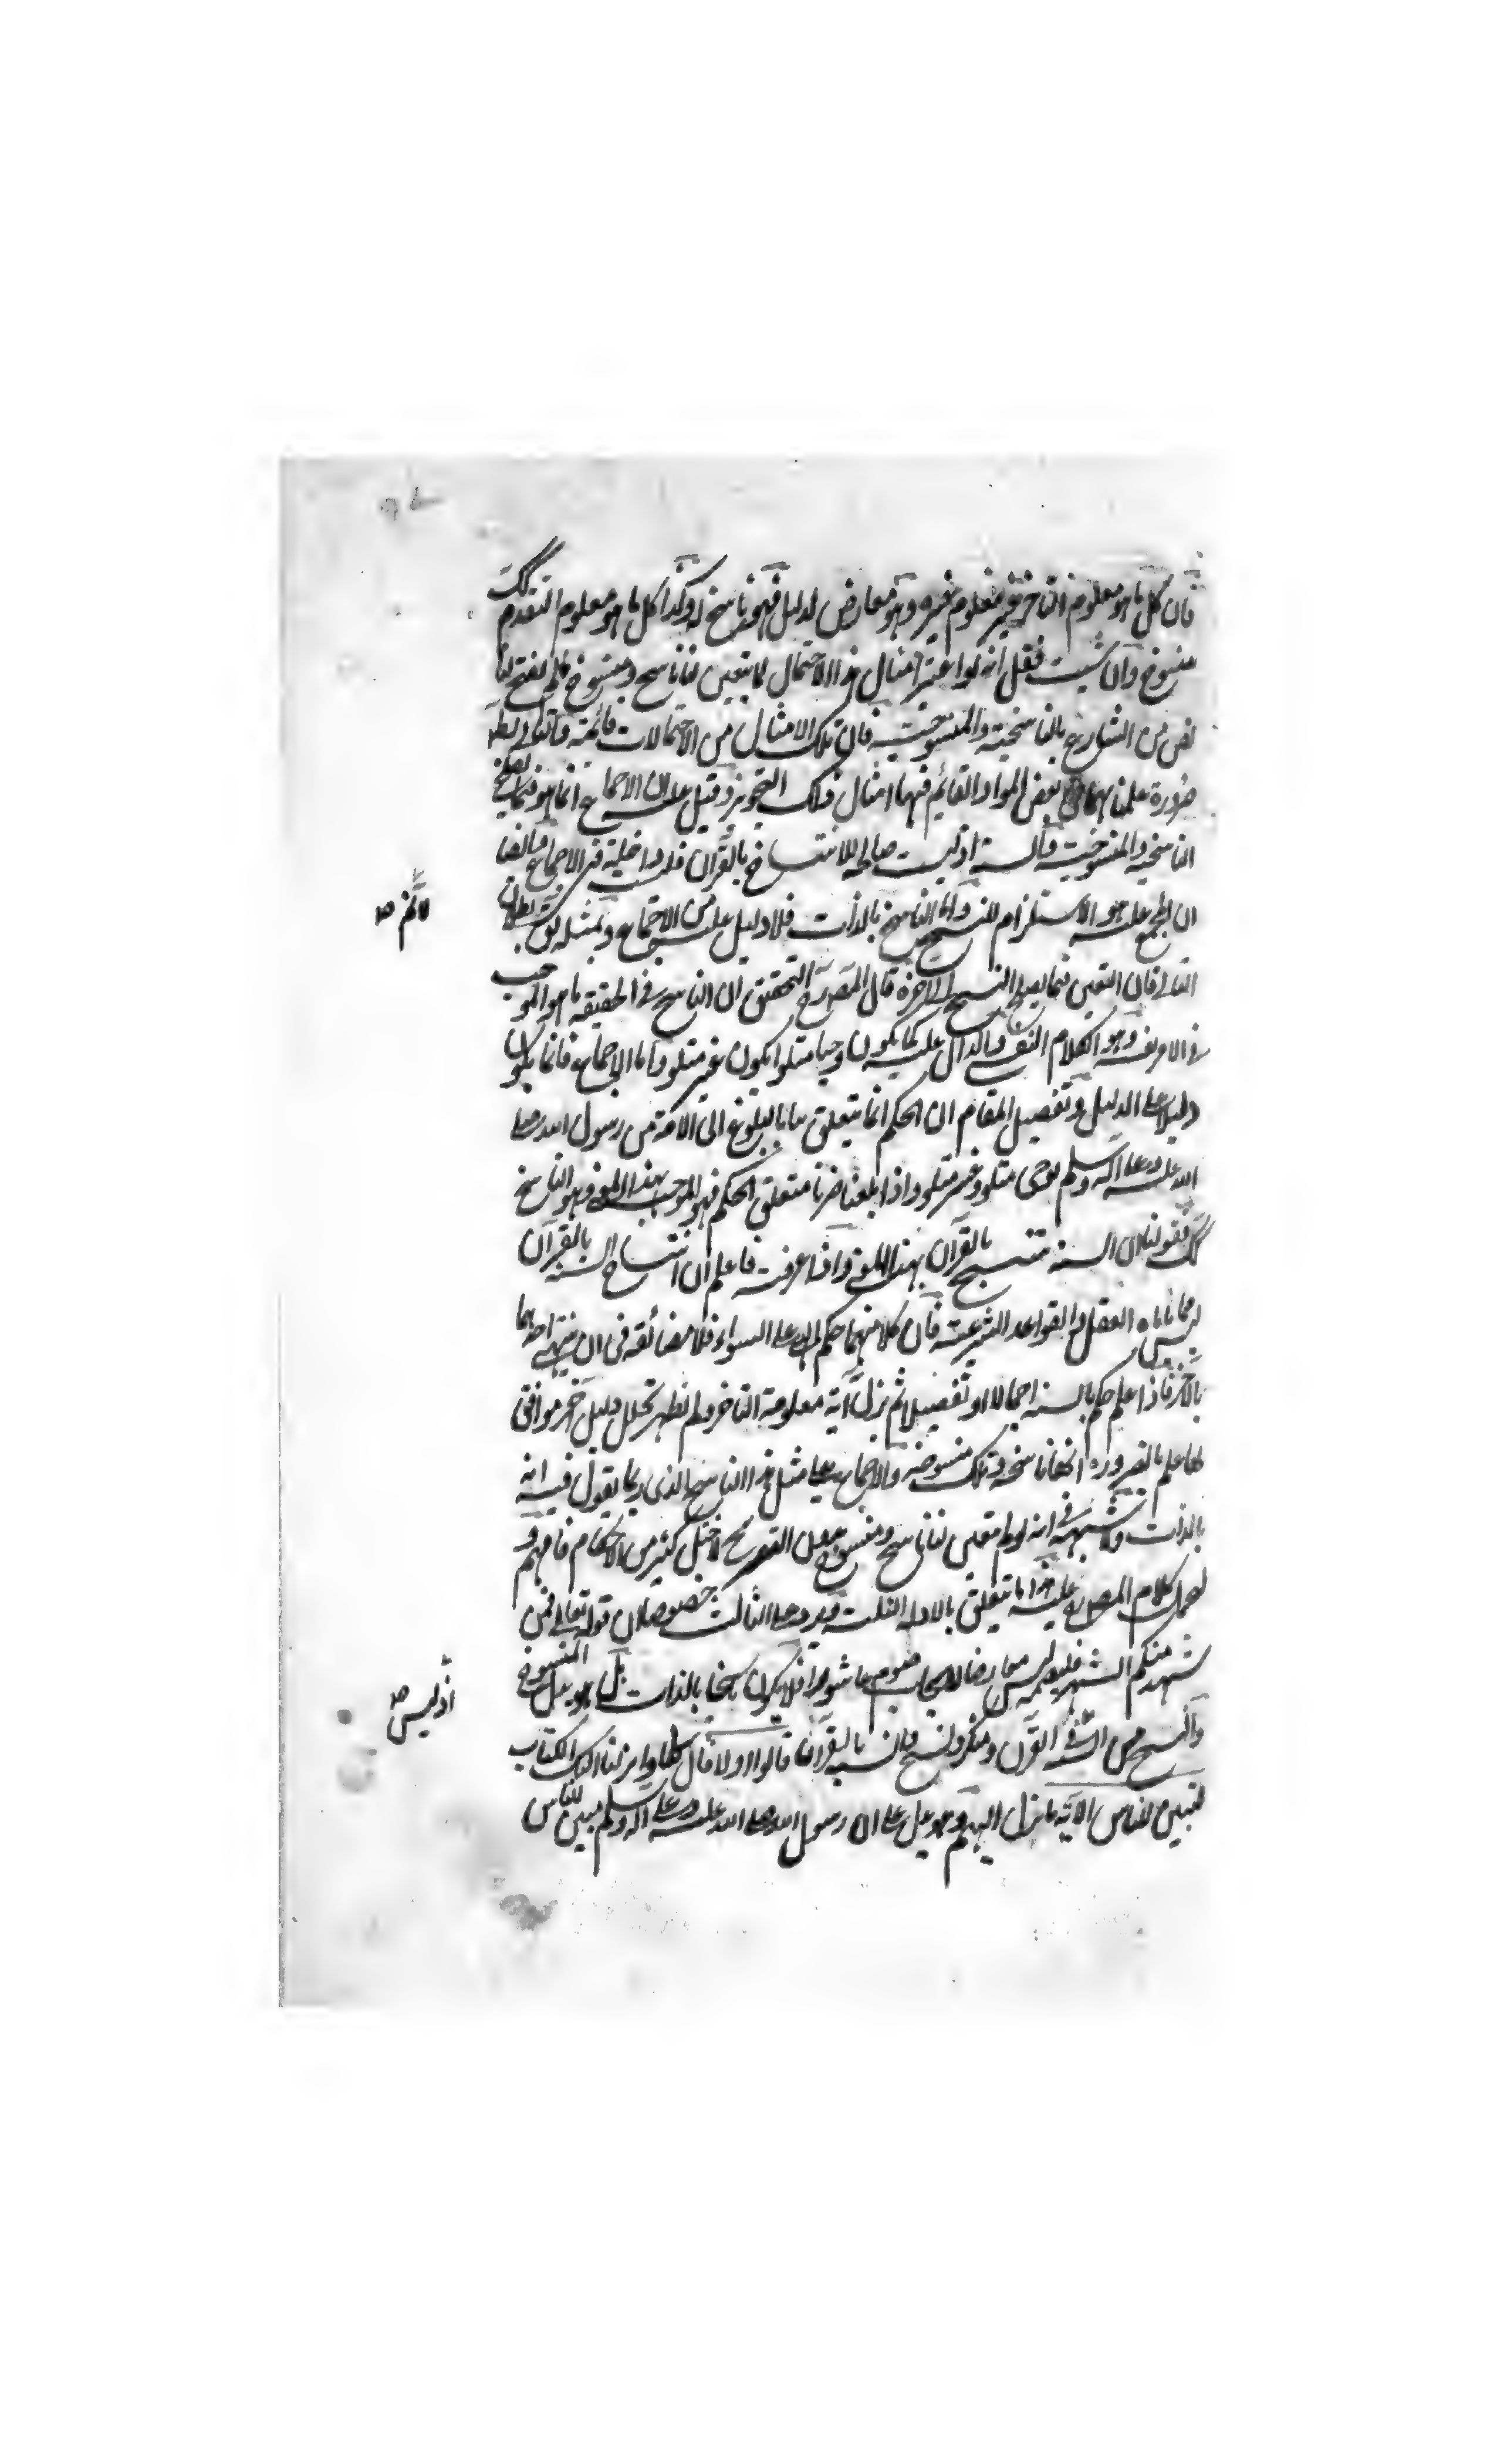 فان كل ما هو معلوم التاخر غير معلوم غيره وهو معارض لدليل فهو ناسخ له وكذا كل ما هو معلوم التقدم
منسوخ وان شئت فقل انه لو اعتبر امثال هذا الاحتمال لما تعين لنا ناسخ ومنسوخ فلم يفتح لنا
نص من الشارع بالناسخية والمنسوخية فان تلك الامثال من الاحتمالات قائمة
ضرورة علمنا بهما فى بعض المواد القائم فيها امثال ذلك التجويز وقيل عليه ان الاجماع انما هو فيما يصلح
الناسخية والمنسوخية والسنة اذ ليست صالحة للانتساخ بالقرآن فليست داخلة فى الاجماع وايضا
ان المجمع عليه هو الاستلزام للنسخ واما الناسخ بالذات فلا دليل عليه من الاجماع وبمثله
التالى فان التعين فيما يصلح النسخ الى آخره قال المصنف رح التحقيق ان الناسخ فى الحقيقة ما هو الموجب
فى الامر نفسه وهو الكلام النفسى والدال عليه كما يكون وحيا متلوا يكون غير متلو واما الاجماع فانما يكون
دليلا على الدليل وتفصيل المقام ان الحكم انما يتعلق بنا بالبلوغ الى الامة من رسول الله صلى
الله عليه وعلى آله وسلم بوحى متلو وغير متلو واذا بلغنا صرنا متعلق الحكم فهو الموجب بهذا المعنى وهو الناسخ
فقولنا ان السنة تنتسخ بالقرآن بهذا المعنى واذا عرفت فاعلم ان انتساخ السنة بالقرآن
ليس مما ياباه العقل والقواعد الشرعية فان كلا منهما حكم الله على السواء فلا مضائقة فى ان ينتهى احدهما
بالآخر فاذا علم حكم بالسنة اجمالا او تفصيلا ثم نزل آية معلومة التاخر ولم يظهر تخلل دليل آخر موافق
لها علم بالضرورة انها ناسخة وتلك منسوخة والاجماع على مثل هذا الناسخ الذى ربما يقول فيه انه
بالذات ولا شبهة فى انه لو لم يتعين لنا ناسخ ومنسوخ بدون التصريح لاختل كثير من الاحكام فافهم و
كلام المصنف رح عليه هذا ما يتعلق بالادلة الثلثة ويرد على الثالث خصوصا ان قوله تعالى فمن
شهد منكم الشهر فليصمه ليس معارضا لايجاب صوم عاشوراء فلا يكون ناسخا بالذات بل هو بدل المنسوخ
والنسخ من السنة فى القرآن ومنكرو نسخ السنة بالقرآن قالوا اولا قال تعالى وانزلنا اليك الكتاب
لتبين للناس الآية ما نزل اليهم وهو يدل على ان رسول الله صلى الله عليه وعلى آله وسلم مبين للناس
اذ ليس صح